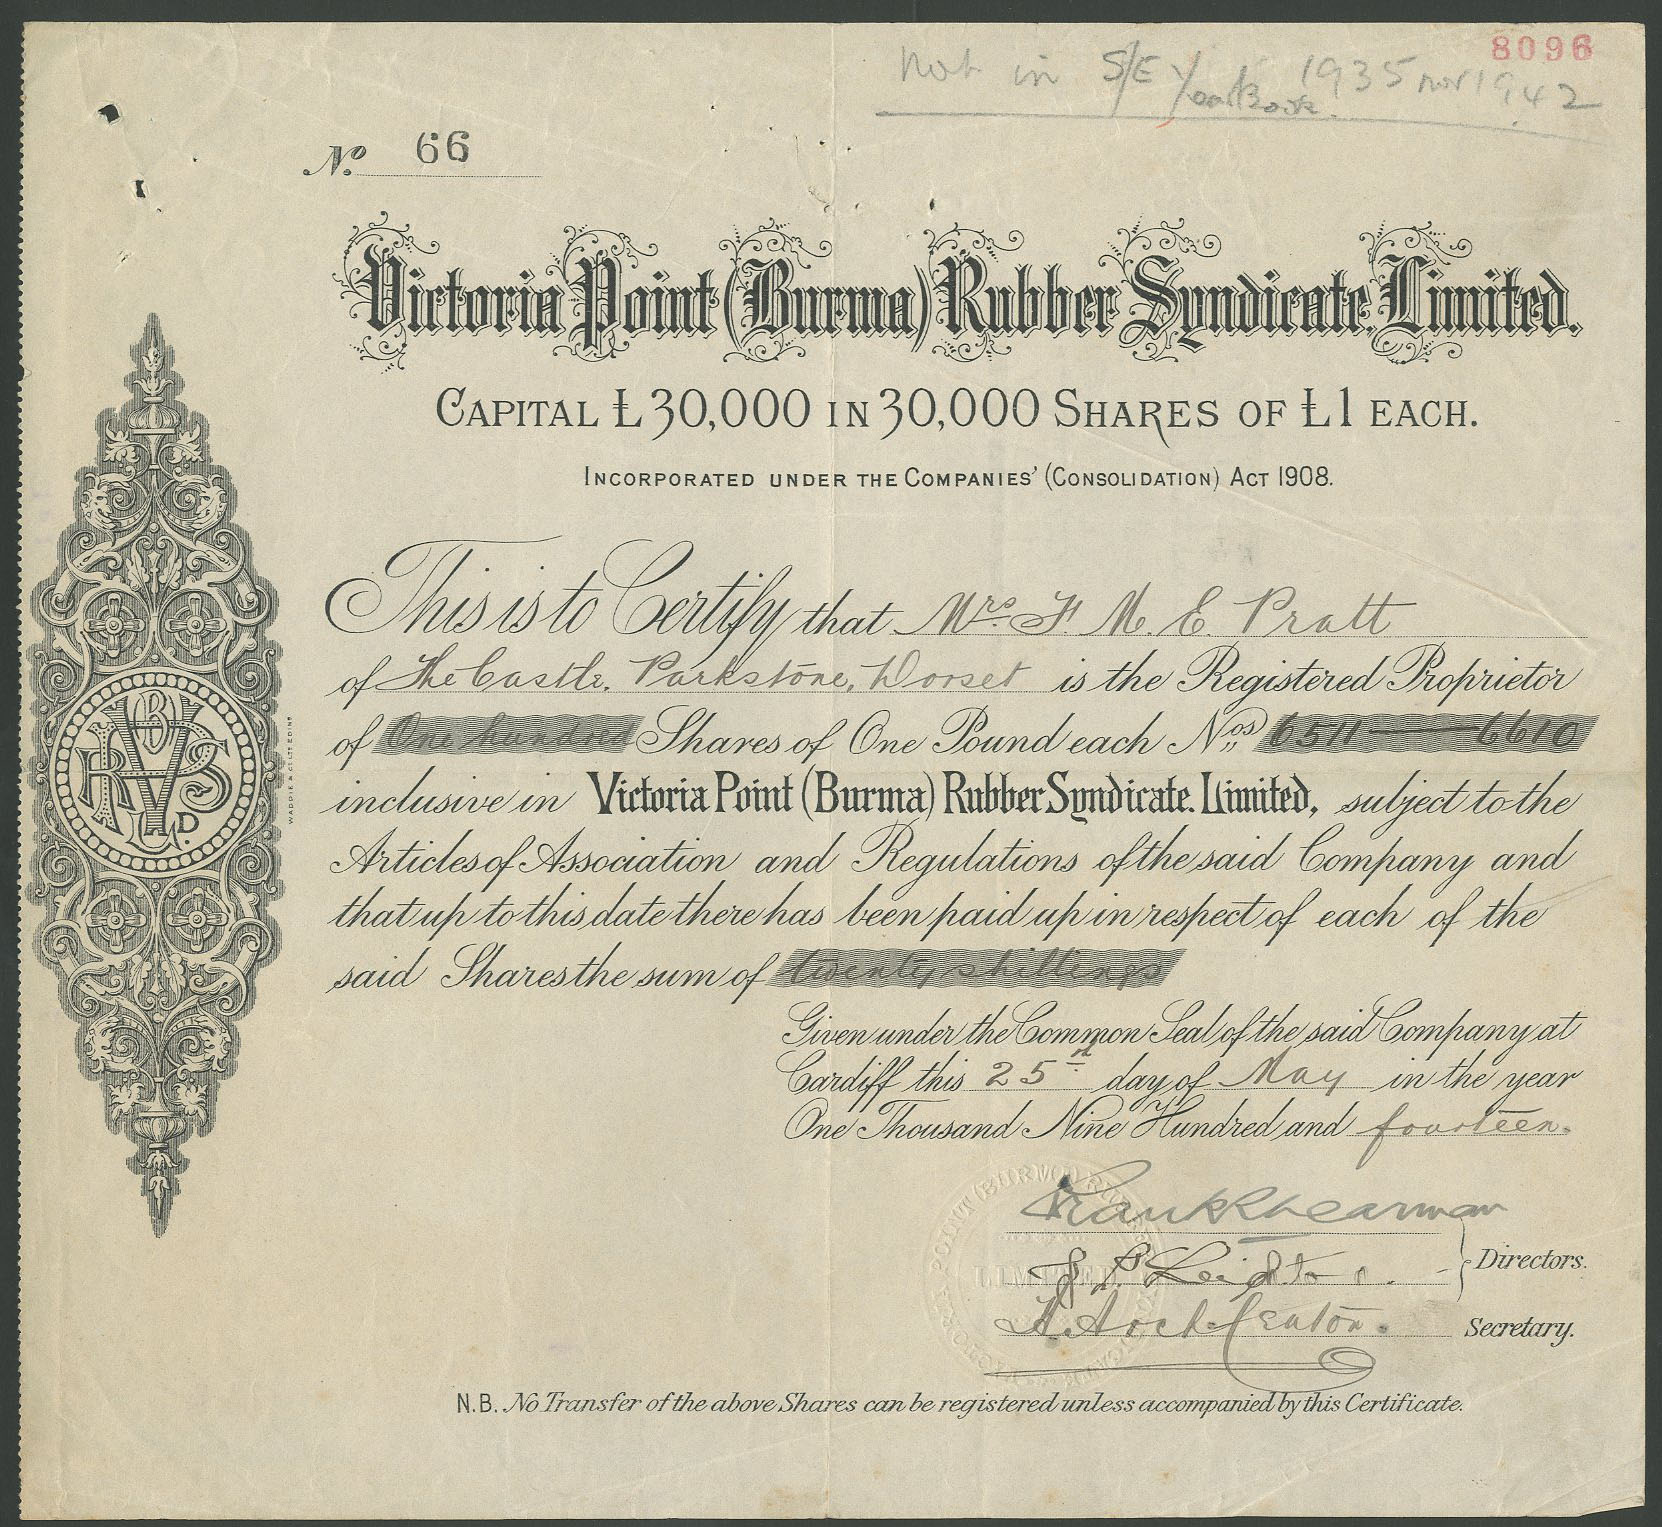 8096
not in S/E YearBook 1935 nor 1942
No. 66
Victoria Point (Burma) Rubber Syndicate, Limited.
CAPITAL £30,000 IN 30,000 SHARES OF £1 EACH.
INCORPORATED UNDER THE COMPANIES' (CONSOLIDATION) ACT 1908.
This is to Certify that Mrs. F. M. E. Pratt
of The Castle, Parkstone, Dorset is the Registered Proprietor
of One hundred Shares of One Pound each Nos 6511 — 6610
inclusive in Victoria Point (Burma) Rubber Syndicate, Limited, subject to the
Articles of Association and Regulations of the said Company and
that up to this date there has been paid up in respect of each of the
said Shares the sum of twenty shillings
Given under the Common Seal of the said Company at
Cardiff this 25th day of May in the year
One Thousand Nine Hundred and fourteen.
Directors.
Secretary.
N.B. No Transfer of the above Shares can be registered unless accompanied by this Certificate.
WADDIE & CO LTD EDINR